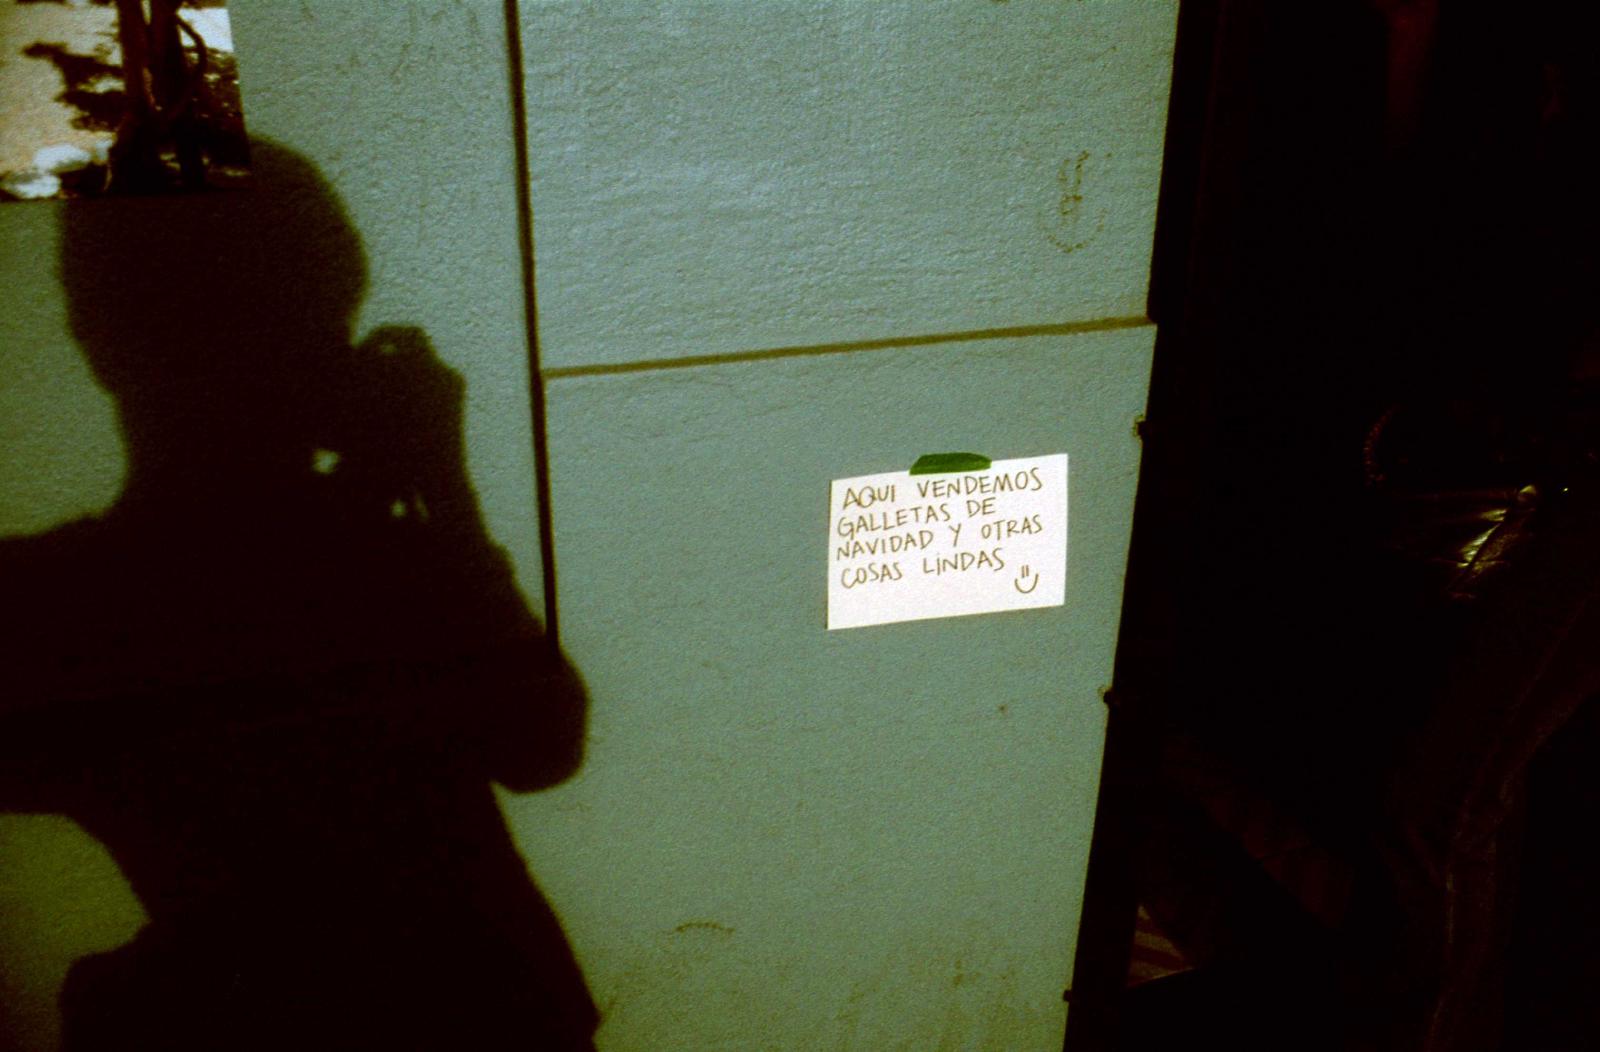 AQUI VENDEMOS
GALLETAS DE
NAVIDAD Y OTRAS
COSAS LiNDAS